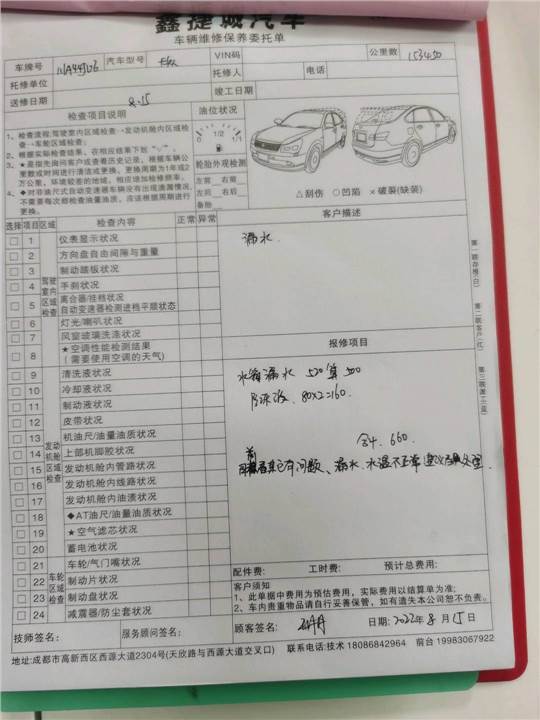 鑫捷诚汽车
车辆维修保养委托单
车牌号 汽车型号 VIN码 公里数 153450
托修单位 托修人 电话
送修日期 8.15 竣工日期
检查项目说明 油位状况
1、检查流程:驾驶室内区域检查→发动机舱内区域检查→车轮区域检查
2、根据实际检查结果，在相应结果下划"√"。
3、★是指先询问客户或查看历史记录，根据车辆公里数或时间进行清洁或更换，更换周期为1年或2万公里，环境较差的地域，相应适加检修频率。
4、◆对非油尺式自动变速器车辆没有出现泄漏情况，不需要每次都检查油量油质，应该根据周期进行更换。
0 1/2 1/1
轮胎外观检测
左前 右前
左后 右后
备胎
△刮伤 ○凹陷 ×破裂(缺装)
选择 项目 区域 检查内容 正常 异常
驾驶室内区域检查
1 仪表显示状况
2 方向盘自由间隙与重量
3 制动踏板状况
4 手刹状况
5 离合器/挂档状况 自动变速器检测进档平顺状态
6 灯光/喇叭状况
7 风窗玻璃洗涤状况
8 ★空调性能检测结果(需要使用空调的天气)
发动机舱区域检查
9 清洗液状况
10 冷却液状况
11 制动液状况
12 皮带状况
13 机油尺/油量油质状况
14 上部机脚胶状况
15 发动机舱内管路状况
16 发动机舱内线路状况
17 发动机舱内油渍状况
18 ◆AT油尺/油量油质状况
19 ★空气滤芯状况
20 蓄电池状况
车轮区域检查
21 车轮/气门嘴状况
22 制动片状况
23 制动盘状况
24 减震器/防尘套状况
客户描述
漏水.
报修项目
水箱漏水 520算500
防冻液. 80×2=160.
合计. 660.
有问题、漏水.水温不正常
配件费: 工时费: 预计总费用:
客户须知
1、此单据中费用为预估费用，实际费用以结算单为准;
2、车内贵重物品请自行妥善保管，如有遗失本公司恕不负责。
技师签名: 服务顾问签名: 顾客签名: 日期: 2022年8月15日
地址:成都市高新西区西源大道2304号(天欣路与西源大道交叉口) 联系电话:技术 18086842964 前台 19983067922
第一联存根(白)
第二联客户(红)